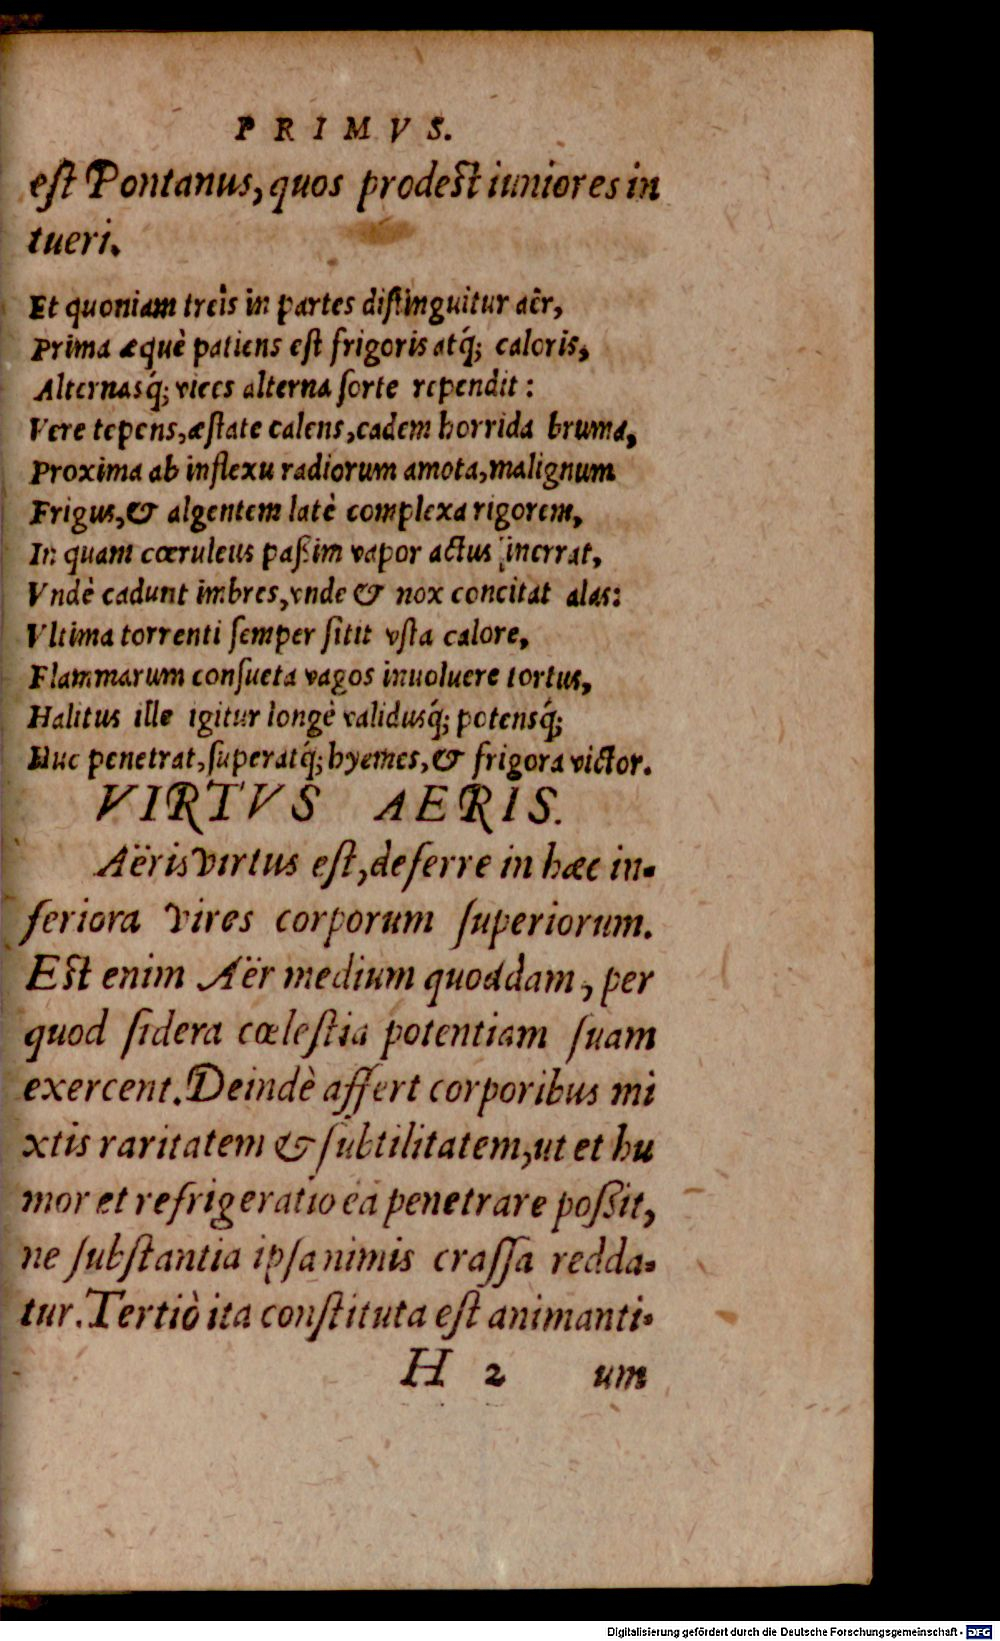 PRIMVS.
eſt Pontanus, quos prodest iuniores in
tueri.
Et quoniam treis in partes diſtinguitur aër,
Prima æquè patiens eſt frigoris atq́; caloris,
Alternasq́; vices alterna ſorte rependit:
Vere tepens, æſtate calens, eadem horrida bruma,
Proxima ab inflexu radiorum amota, malignum
Frigus, & algentem latè complexa rigorem,
In quam cœruleus paßim vapor actus inerrat,
Vndè cadunt imbres, vnde & nox concitat alas:
Vltima torrenti ſemper ſitit vſta calore,
Flammarum conſueta vagos inuoluere tortus,
Halitus ille igitur longè validusq́; potensq́;
Huc penetrat, ſuperatq́; hyemes, & frigora victor.
VIRTVS AERIS.
Aëris virtus eſt, deferre in hæc in-
feriora vires corporum ſuperiorum.
Est enim Aër medium quoddam, per
quod ſidera cœleſtia potentiam ſuam
exercent. Deindè affert corporibus mi
xtis raritatem & ſubtilitatem, ut et hu
mor et refrigeratio ea penetrare poßit,
ne ſubſtantia ipſa nimis craſſa redda-
tur. Tertiò ita conſtituta eſt animanti-
H 2 um
Digitalisierung gefördert durch die Deutsche Forschungsgemeinschaft - DFG